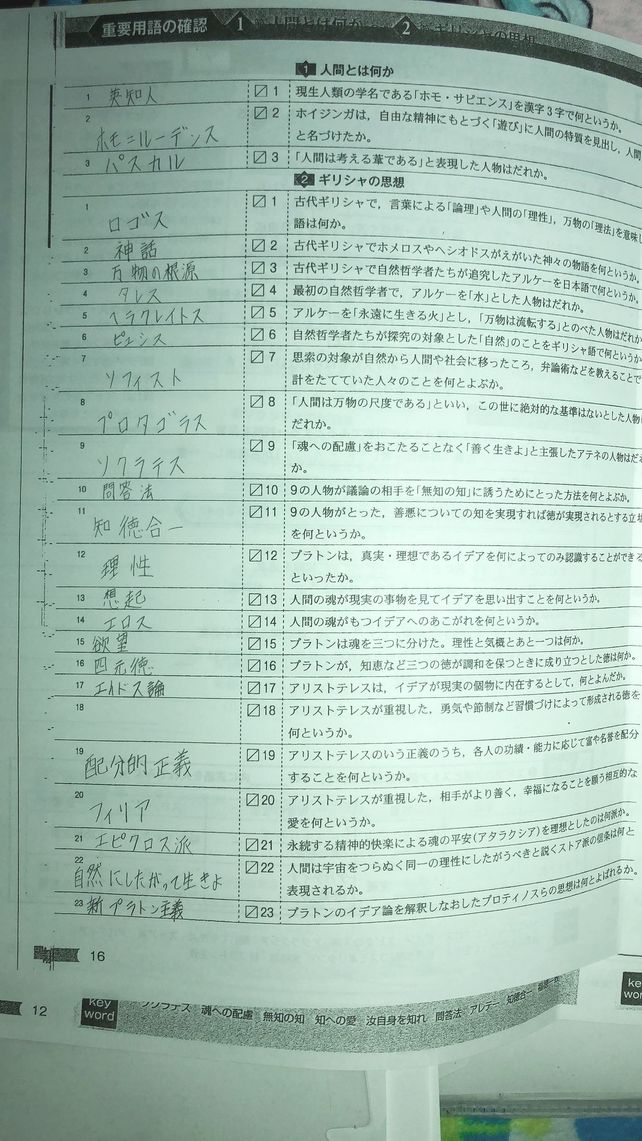 重要用語の確認 1 人間とは何か 2 ギリシャの思想
1 人間とは何か
1 英知人 1 現生人類の学名である「ホモ・サピエンス」を漢字3字で何というか。
2 ホモ=ルーデンス 2 ホイジンガは，自由な精神にもとづく「遊び」に人間の特質を見出し，人間
と名づけたか。
3 パスカル 3 「人間は考える葦である」と表現した人物はだれか。
2 ギリシャの思想
1 ロゴス 1 古代ギリシャで，言葉による「論理」や人間の「理性」，万物の「理法」を意味し
語は何か。
2 神話 2 古代ギリシャでホメロスやヘシオドスがえがいた神々の物語を何というか。
3 万物の根源 3 古代ギリシャで自然哲学者たちが追究したアルケーを日本語で何というか。
4 タレス 4 最初の自然哲学者で，アルケーを「水」とした人物はだれか。
5 ヘラクレイトス 5 アルケーを「永遠に生きる火」とし，「万物は流転する」とのべた人物はだれか
6 ピュシス 6 自然哲学者たちが探究の対象とした「自然」のことをギリシャ語で何というか
7 ソフィスト 7 思索の対象が自然から人間や社会に移ったころ，弁論術などを教えることで
計をたてていた人々のことを何とよぶか。
8 プロタゴラス 8 「人間は万物の尺度である」といい，この世に絶対的な基準はないとした人物
だれか。
9 ソクラテス 9 「魂への配慮」をおこたることなく「善く生きよ」と主張したアテネの人物はだれ
か。
10 問答法 10 9の人物が議論の相手を「無知の知」に誘うためにとった方法を何とよぶか。
11 知徳合一 11 9の人物がとった，善悪についての知を実現すれば徳が実現されるとする立場
を何というか。
12 理性 12 プラトンは，真実・理想であるイデアを何によってのみ認識することができる
といったか。
13 想起 13 人間の魂が現実の事物を見てイデアを思い出すことを何というか。
14 エロス 14 人間の魂がもつイデアへのあこがれを何というか。
15 欲望 15 プラトンは魂を三つに分けた。理性と気概とあと一つは何か。
16 四元徳 16 プラトンが，知恵など三つの徳が調和を保つときに成り立つとした徳は何か。
17 エイドス論 17 アリストテレスは，イデアが現実の個物に内在するとして，何とよんだか。
18 18 アリストテレスが重視した，勇気や節制など習慣づけによって形成される徳を
何というか。
19 配分的正義 19 アリストテレスのいう正義のうち，各人の功績・能力に応じて富や名誉を配分
することを何というか。
20 フィリア 20 アリストテレスが重視した，相手がより善く，幸福になることを願う相互的な
愛を何というか。
21 エピクロス派 21 永続する精神的快楽による魂の平安(アタラクシア)を理想としたのは何派か。
22 自然にしたがって生きよ 22 人間は宇宙をつらぬく同一の理性にしたがうべきと説くストア派の信条は何と
表現されるか。
23 新プラトン主義 23 プラトンのイデア論を解釈しなおしたプロティノスらの思想は何とよばれるか。
16
12 key word ソクラテス 魂への配慮 無知の知 知への愛 汝自身を知れ 問答法 アレテー 知徳合一 福徳一致
key word